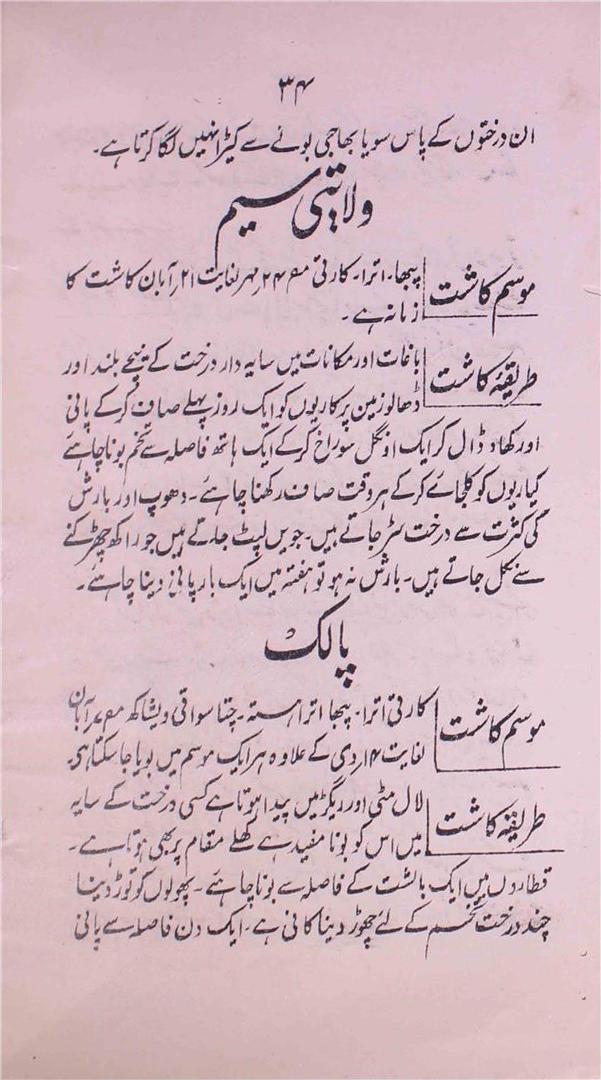 ۳۴
ان درختوں کے پاس سویا بھاجی بونے سے کیڑا نہیں لگا کرتا ہے۔
ولایتی سیم
موسم کاشت
پبھا۔ اترا۔ کارتی م ۲۴ مہر لغایت ۲۱؍ آبان کاشت کا
زمانہ ہے۔
طریقۂ کاشت
باغات اور مکانات میں سایہ دار درخت کے نیچے بلند اور
ڈھالو زمین پر کاریوں کو ایک روز پہلے صاف کر کے پانی
اور کھاد ڈال کر ایک اونگل سوراخ کر کے ایک ہاتھ فاصلہ سے تخم بونا چاہئے
کیاریوں کو کلجائے کر کے ہر وقت صاف رکھنا چاہئے۔ دھوپ اور بارش
کی کثرت سے درخت سڑ جاتے ہیں۔ جویں لپٹ جاتے ہیں جو راکھ چھڑکنے
سے نکل جاتے ہیں۔ بارش نہ ہو تو ہفتہ میں ایک بار پانی دینا چاہئے۔
پالک
موسم کاشت
کارتی اترا۔ پبھا اترا ہستہ۔ چتا سواتی ویشاکھ م ۷؍ آبان
لغایت ۱۴؍ اردی کے علاوہ ہر ایک موسم میں بویا جا سکتا ہی۔
طریقہ کاشت
لال مٹی اور ریگڑ میں پیدا ہوتا ہے کسی درخت کے سایہ
میں اس کو بونا مفید ہے کھلے مقام پر بھی ہوتا ہے۔
قطاروں میں ایک بالشت کے فاصلہ سے بونا چاہئے۔ پھولوں کو توڑ دینا
چند درخت تخم کے لئے چھوڑ دینا کافی ہے۔ ایک دن فاصلہ سے پانی